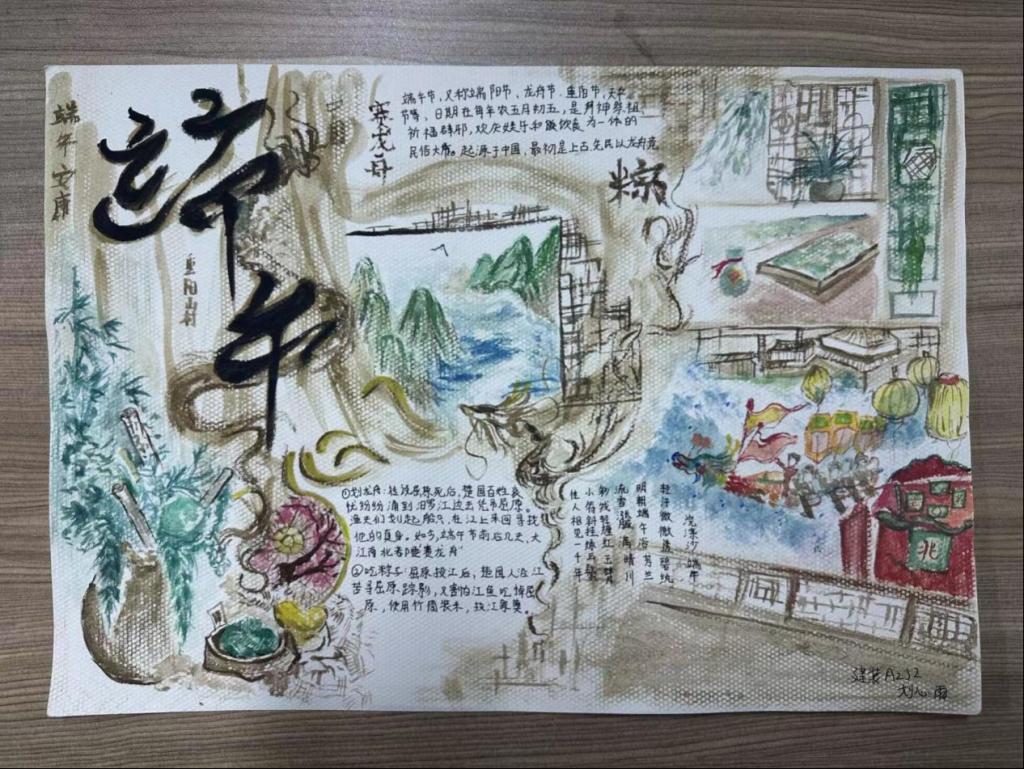 端午安康
端午
重阳
赛龙舟
端午节，又称端阳节、龙舟节、重阳节、天中
节等，日期在每年农历五月初五，是拜神祭祖、
祈福辟邪，欢庆娱乐和饮食为一体的
民俗大节。起源于中国，最初是上古先民以龙舟竞
粽
①划龙舟：往没屈原死后，楚国百姓哀
忧纷纷涌到汨罗江边去凭吊屈原。
渔夫们划起船只，在江上来回寻找
他的真身。如今，端午节前后几天，大
江南北者都赛龙舟
②吃粽子：屈原投江后，楚国人在江
苦寻屈原踪影，又害怕江鱼吃掉屈
原，使用竹筒装米，投江祭奠。
浣溪沙 端午
轻汗微微透碧纨
明朝端午浴芳兰
流香涨腻满晴川
彩线轻缠红玉臂
小符斜挂绿云鬟
佳人相见一千年
兆
建装A232
刘心雨